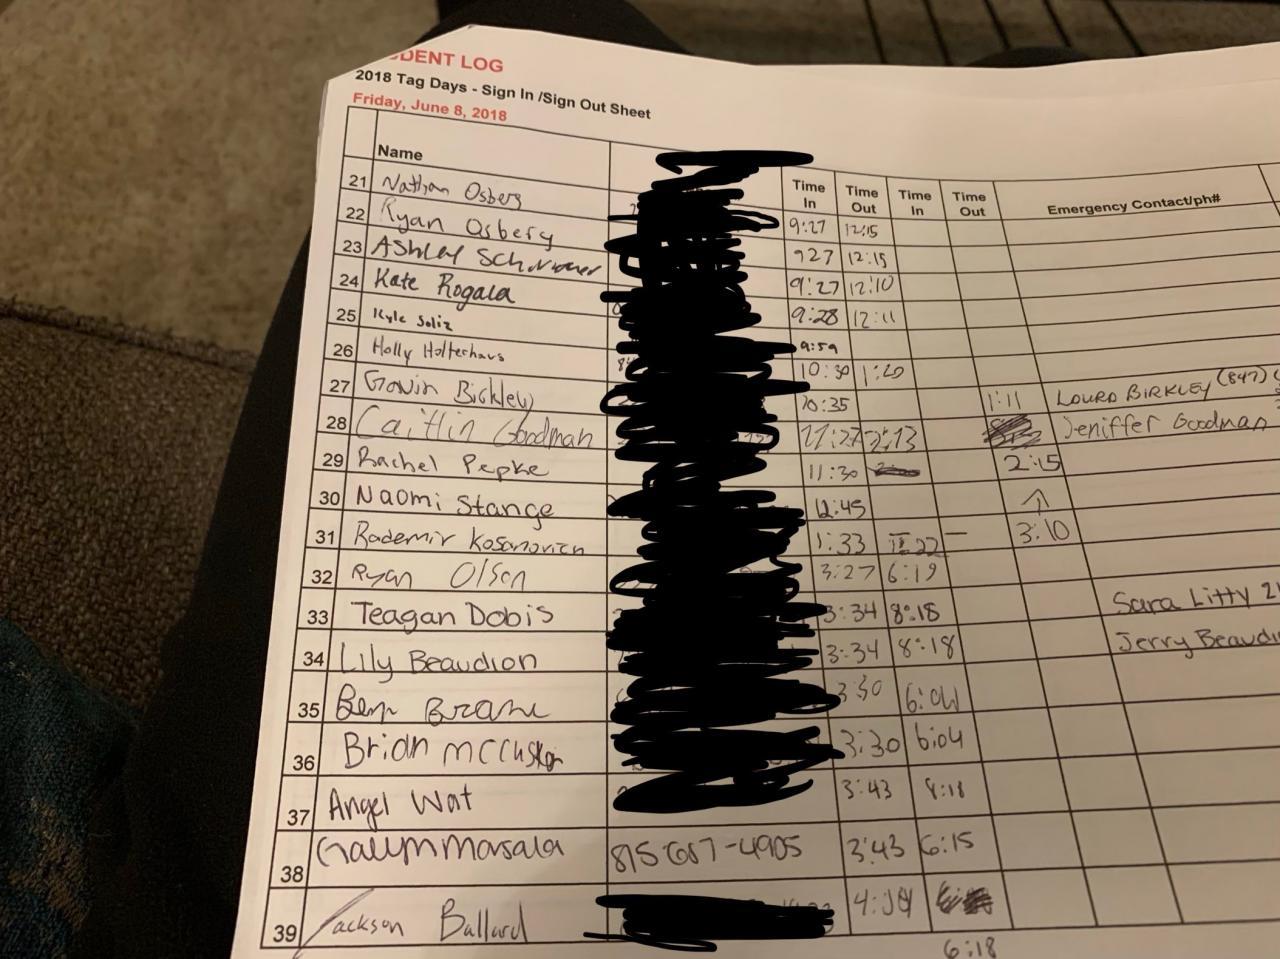 DENT LOG
2018 Tag Days - Sign In /Sign Out Sheet
Friday, June 8, 2018
Name Time In Time Out Time In Time Out Emergency Contact/ph#
21 Nathan Osberg 9:27 12:15
22 Ryan Osberg 927 12:15
23 Ashley 9:27 12:10
24 Kate Rogala 9:28 12:11
25 Kyle Soliz 9:59
26 Holly Holterhaus 10:30 1:20
27 Gavin Bickley 10:35 1:11 LOURA BIRKLEY (847)
28 Caitlin Goodman 11:27 2:13 Jeniffer Goodman
29 Rachel Pepke 11:30 2:15
30 Naomi Stange 12:45
31 Rademir Kosanovich 1:33 3:10
32 Ryan Olson 3:27 6:19
33 Teagan Dobis 3:34 8:18 Sara Litty 21
34 Lily Beaudion 3:34 8:18 Jerry Beaudi
35 3:30 6:04
36 Brian McCusker 3:30 6:04
37 Angel Wat 3:43 8:18
38 Galym Masala 815-687-4905 3:43 6:15
39 Jackson Ballard
6:18